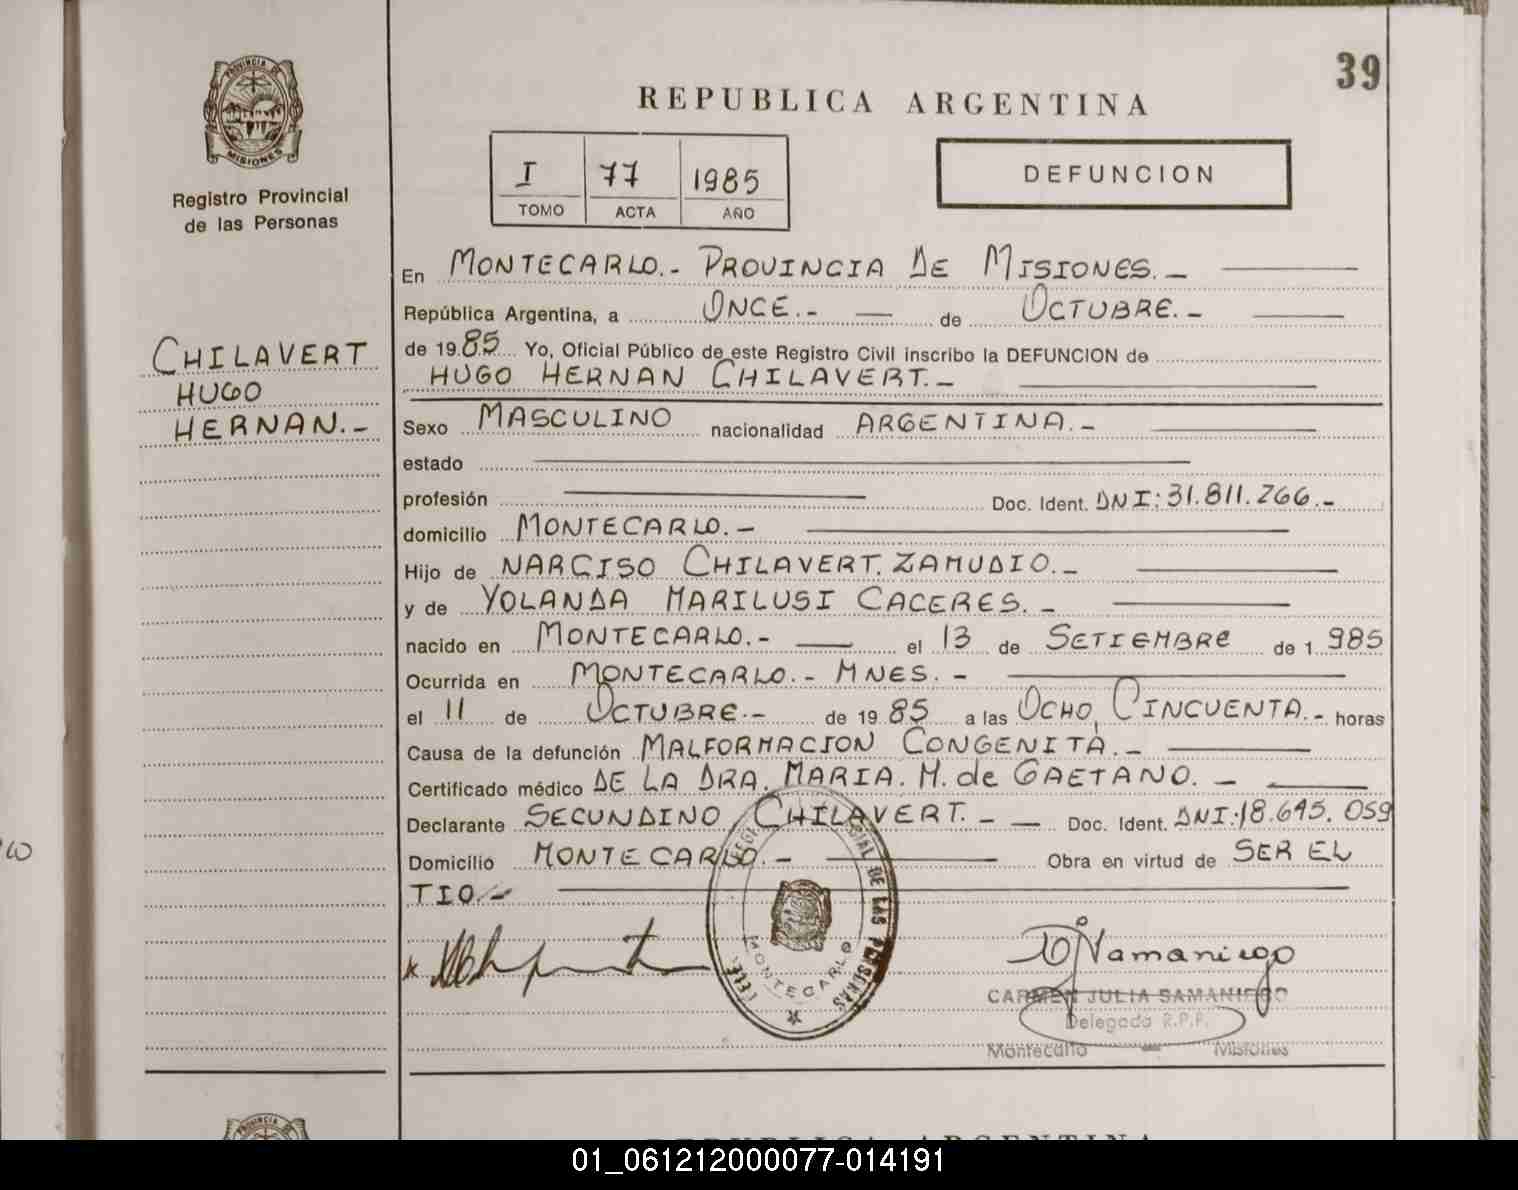 39
PROVINCIA DE
MISIONES
REPUBLICA ARGENTINA
Registro Provincial
de las Personas
I 77 1985
TOMO ACTA AÑO
DEFUNCION
CHILAVERT
HUGO
HERNAN.-
En MONTECARLO.- PROVINCIA DE MISIONES.-
República Argentina, a ONCE.- de OCTUBRE.-
de 1985 Yo, Oficial Público de este Registro Civil inscribo la DEFUNCION de
HUGO HERNAN CHILAVERT.-
Sexo MASCULINO nacionalidad ARGENTINA.-
estado
profesión Doc. Ident. DNI: 31.811.266.-
domicilio MONTECARLO.-
Hijo de NARCISO CHILAVERT. ZAMUDIO.-
y de YOLANDA MARILUSI CACERES.-
nacido en MONTECARLO.- el 13 de SETIEMBRE de 1985
Ocurrida en MONTECARLO.- MNES.-
el 11 de OCTUBRE.- de 1985 a las OCHO, CINCUENTA.- horas
Causa de la defunción MALFORMACION CONGENITA.-
Certificado médico DE LA DRA. MARIA. M. de GAETANO.-
Declarante SECUNDINO CHILAVERT.- Doc. Ident. DNI: 18.645.059
Domicilio MONTECARLO.- Obra en virtud de SER EL
TIO.-
DE LAS PERSONAS
MONTECARLO
Samaniego
CARMEN JULIA SAMANIEGO
Delegada R.P.P.
Montecarlo - Misiones
REPUBLICA ARGENTINA
01_061212000077-014191